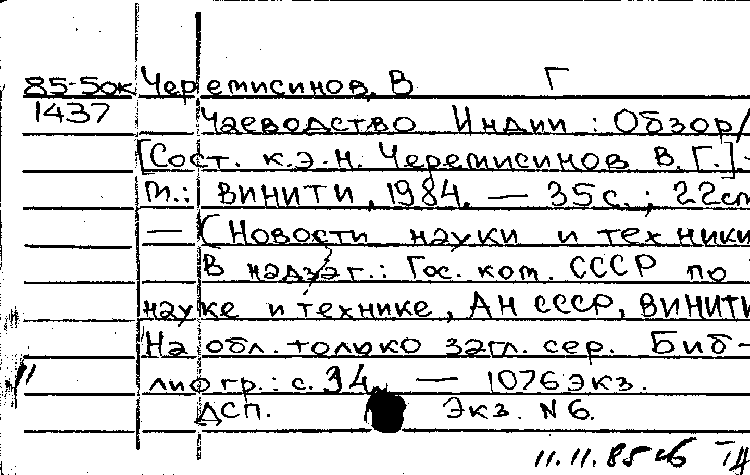 85-5ок Черемисинов, В Г
1437
Чаеводство Индии : Обзор/
[Сост. к.э.н. Черемисинов В. Г.].-
М.: ВИНИТИ, 1984. — 35 с.; 22 см
— (Новости науки и техники
В надзаг.: Гос. ком. СССР по
науке и технике, АН СССР, ВИНИТИ
На обл. только загл. сер. Биб-
лиогр.: с. 34. — 1076 экз.
ДСП. Экз. N 6.
11.11.85